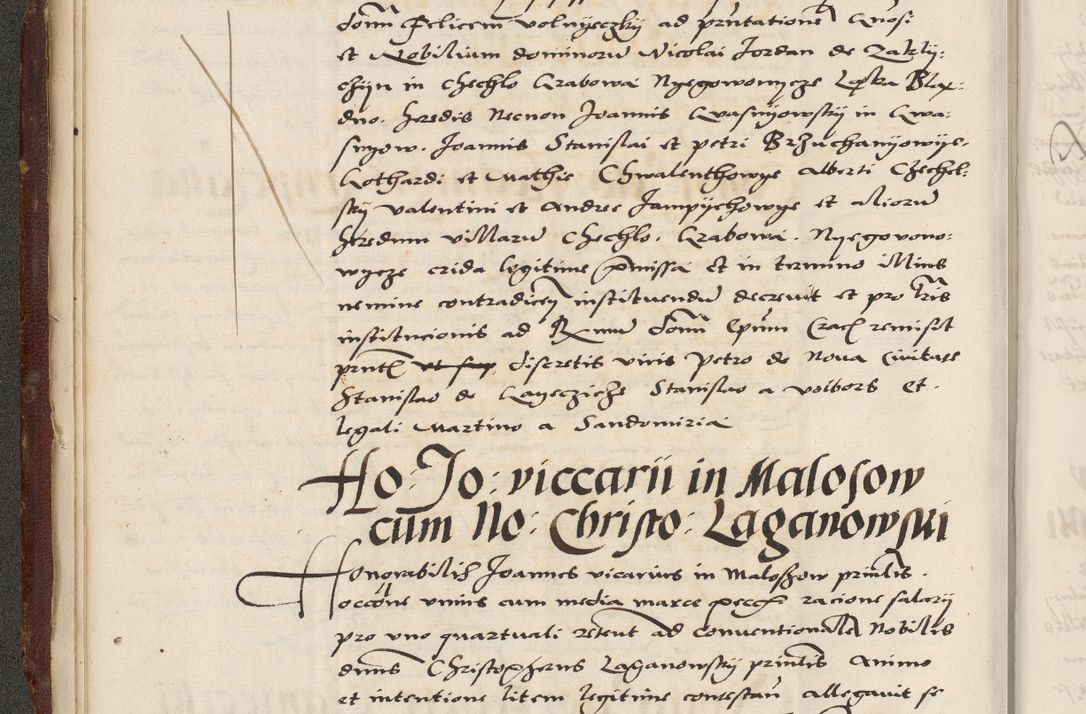 domn Felicem volnyeczky ad pntationē Gnosi
et Nobilium dominorū Nicolai Jordan de Zakly:
chyn in Chechlo Grabowa Nyegowonycze Laska Blax:
dno. heredis Necnon Joannis Gwasnyowsky in Gwa:
snyow. Joannis Stanislai et petri Brzuchanyowye.
Gothardi et Mathie Chwalenthowye Alberti Chechel:
sky valentini et Andree Jampychowye et aliorū
heredum villarū Chechlo. Grabowa. Nyegovono:
wycze crida legitime pmissa Et in termino illius
nemine contradicen instituendū decrevit et pro lris
institucionis ad Rmū domn Epum Crac remisit
pntt ut sup discretis viris Petro de Nova Civitate
Stanislao de Stanislao a volbors Et.
legali Martino a Sandomiria
Ho: Jo: viccarii in Malosow
cum No: Christo: Laganowski
Honorabilis Joannes vicarius in Maloschow printlis.
occōne unius cum media marce pecc racione salarij
pro uno quartuali retent ad conventionale Nobilis
dnus Christopherus Laganowsky printlis Animo
et intentione litem legitime contestan allegavit se